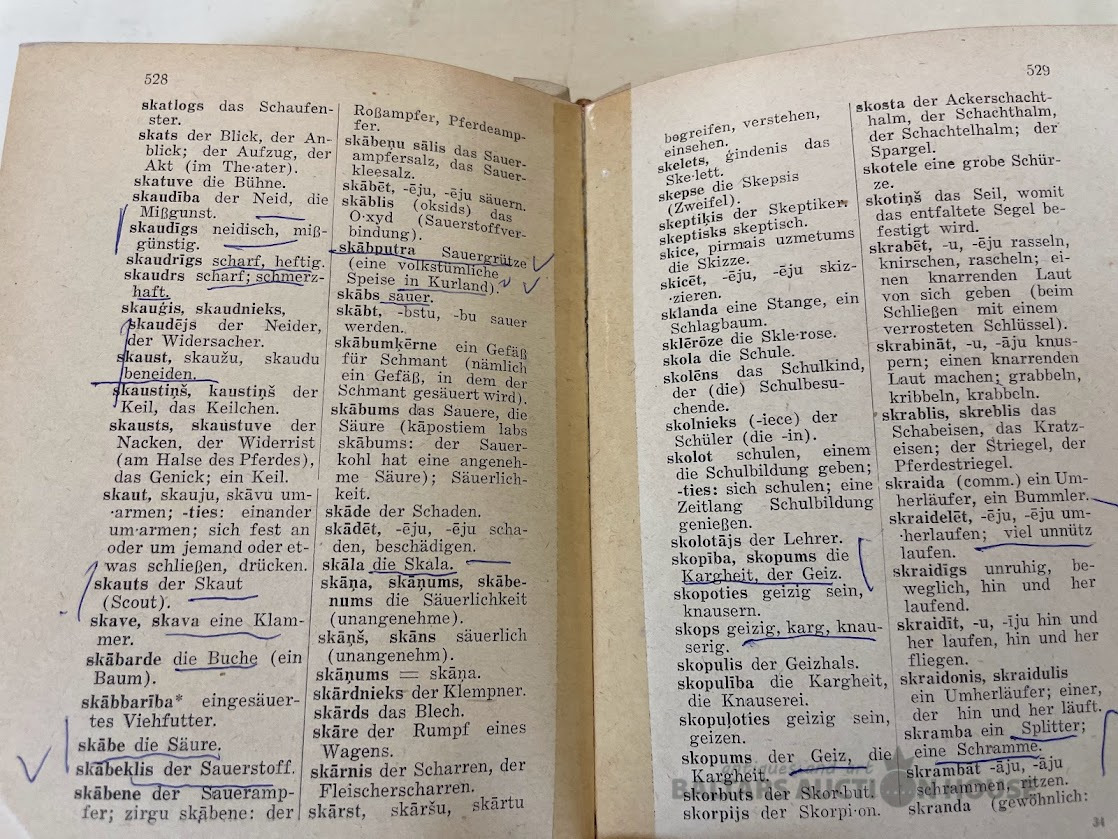 528
skatlogs das Schaufen-
ster.
skats der Blick, der An-
blick; der Aufzug, der
Akt (im The·ater).
skatuve die Bühne.
skaudība der Neid, die
Mißgunst.
skaudīgs neidisch, miß-
günstig.
skaudrīgs scharf, heftig.
skaudrs scharf; schmerz-
haft.
skauģis, skaudnieks,
skaudējs der Neider,
der Widersacher.
skaust, skaužu, skaudu
beneiden.
skaustiņš, kaustiņš der
Keil, das Keilchen.
skausts, skaustuve der
Nacken, der Widerrist
(am Halse des Pferdes),
das Genick; ein Keil.
skaut, skauju, skāvu um-
·armen; -ties: einander
um·armen; sich fest an
oder um jemand oder et-
was schließen, drücken.
skauts der Skaut
(Scout).
skave, skava eine Klam-
mer.
skābarde die Buche (ein
Baum).
skābbarība* eingesäuer-
tes Viehfutter.
skābe die Säure.
skābeklis der Sauerstoff.
skābene der Saueramp-
fer; zirgu skābene: der
Roßampfer, Pferdeamp-
fer.
skābeņu sālis das Sauer-
ampfersalz, das Sauer-
kleesalz.
skābēt, -ēju, -ēju säuern.
skāblis (oksids) das
O·xyd (Sauerstoffver-
bindung).
skābputra Sauergrütze
(eine volkstümliche
Speise in Kurland).
skābs sauer.
skābt, -bstu, -bu sauer
werden.
skābumķērne ein Gefäß
für Schmant (nämlich
ein Gefäß, in dem der
Schmant gesäuert wird).
skābums das Sauere, die
Säure (kāpostiem labs
skābums: der Sauer-
kohl hat eine angeneh-
me Säure); Säuerlich-
keit.
skāde der Schaden.
skādēt, -ēju, -ēju scha-
den, beschädigen.
skāla die Skala.
skāņa, skāņums, skābe-
nums die Säuerlichkeit
(unangenehme).
skāņš, skāns säuerlich
(unangenehm).
skāņums = skāņa.
skārdnieks der Klempner.
skārds das Blech.
skāre der Rumpf eines
Wagens.
skārnis der Scharren, der
Fleischerscharren.
skārst, skāršu, skārtu
529
begreifen, verstehen,
einsehen.
skelets, ģindenis das
Ske·lett.
skepse die Skepsis
(Zweifel).
skeptiķis der Skeptiker.
skeptisks skeptisch.
skice, pirmais uzmetums
die Skizze.
skicēt, -ēju, -ēju skiz-
·zieren.
sklanda eine Stange, ein
Schlagbaum.
sklērōze die Skle·rose.
skola die Schule.
skolēns das Schulkind,
der (die) Schulbesu-
chende.
skolnieks (-iece) der
Schüler (die -in).
skolot schulen, einem
die Schulbildung geben;
-ties: sich schulen; eine
Zeitlang Schulbildung
genießen.
skolotājs der Lehrer.
skopība, skopums die
Kargheit, der Geiz.
skopoties geizig sein,
knausern.
skops geizig, karg, knau-
serig.
skopulis der Geizhals.
skopulība die Kargheit,
die Knauserei.
skopuļoties geizig sein,
geizen.
skopums der Geiz, die
Kargheit.
skorbuts der Skor·but.
skorpijs der Skorpi·on.
skosta der Ackerschacht-
halm, der Schachthalm,
der Schachtelhalm; der
Spargel.
skotele eine grobe Schür-
ze.
skotiņš das Seil, womit
das entfaltete Segel be-
festigt wird.
skrabēt, -u, -ēju rasseln,
knirschen, rascheln; ei-
nen knarrenden Laut
von sich geben (beim
Schließen mit einem
verrosteten Schlüssel).
skrabināt, -u, -āju knus-
pern; einen knarrenden
Laut machen; grabbeln,
kribbeln, krabbeln.
skrablis, skreblis das
Schabeisen, das Kratz-
eisen; der Striegel, der
Pferdestriegel.
skraida (comm.) ein Um-
herläufer, ein Bummler.
skraidelēt, -ēju, -ēju um-
·herlaufen; viel unnütz
laufen.
skraidīgs unruhig, be-
weglich, hin und her
laufend.
skraidīt, -u, -īju hin und
her laufen, hin und her
fliegen.
skraidonis, skraidulis
ein Umherläufer; einer,
der hin und her läuft.
skramba ein Splitter;
eine Schramme.
skrambāt -āju, -āju
schrammen, ritzen.
skranda (gewöhnlich:
34
antiques and art
BALTARS AUCTION HOUSE